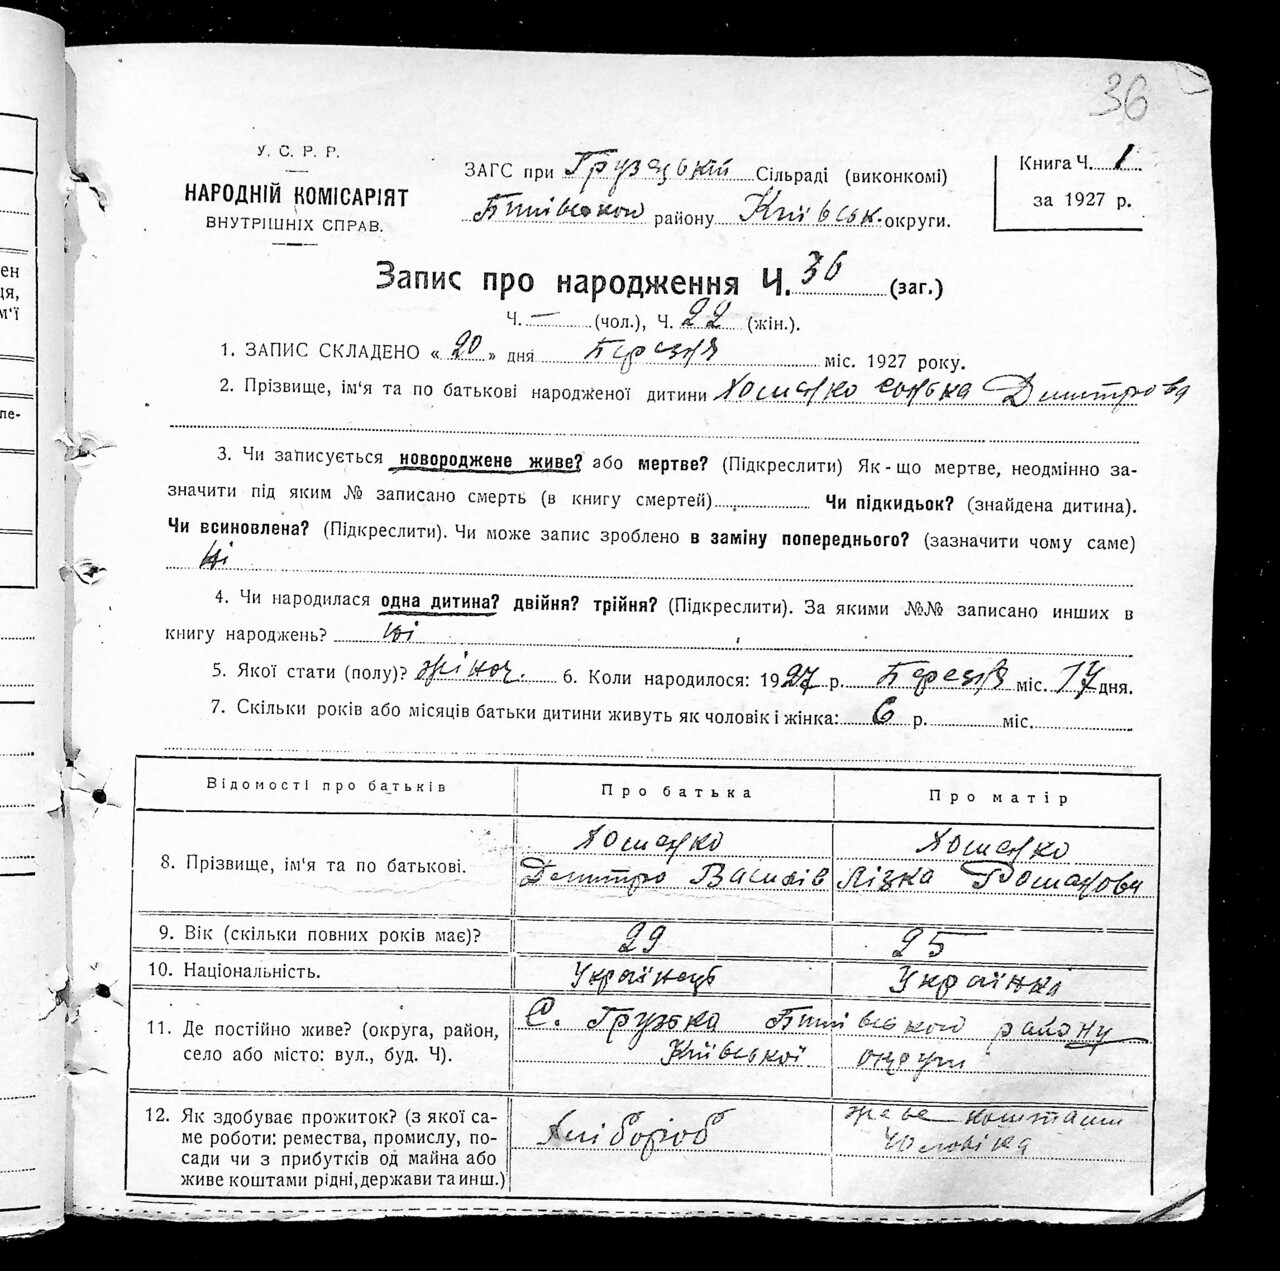 36
У. С. Р. Р.
НАРОДНІЙ КОМІСАРІЯТ
ВНУТРІШНІХ СПРАВ.
ЗАГС при Грузській Сільраді (виконкомі)
району Київськ. округи.
Книга Ч. 1
за 1927 р.
Запис про народження Ч. 36 (заг.)
Ч. — (чол.), Ч. 22 (жін.).
1. ЗАПИС СКЛАДЕНО « 20 » дня Березня міс. 1927 року.
2. Прізвище, ім'я та по батькові народженої дитини Хоменко Сонька Дмитрова
3. Чи записується новороджене живе? або мертве? (Підкреслити) Як-що мертве, неодмінно за-
значити під яким № записано смерть (в книгу смертей) Чи підкидьок? (знайдена дитина).
Чи всиновлена? (Підкреслити). Чи може запис зроблено в заміну попереднього? (зазначити чому саме)
Ні
4. Чи народилася одна дитина? двійня? трійня? (Підкреслити). За якими №№ записано инших в
книгу народжень? Ні
5. Якої стати (полу)? жіноч. 6. Коли народилося: 1927 р. Березня міс. 17 дня.
7. Скільки років або місяців батьки дитини живуть як чоловік і жінка: 6 р. міс.
Відомості про батьків
Про батька
Про матір
8. Прізвище, ім'я та по батькові.
Хоменко
Дмитро Василів
Хоменко
Лізка Романова
9. Вік (скільки повних років має)?
29
25
10. Національність.
Українець
Українка
11. Де постійно живе? (округа, район,
село або місто: вул., буд. Ч).
С. Грузька району
Київської округи
12. Як здобуває прожиток? (з якої са-
ме роботи: ремества, промислу, по-
сади чи з прибутків од майна або
живе коштами рідні, держави та инш.)
Хлібороб
живе коштами
чоловіка